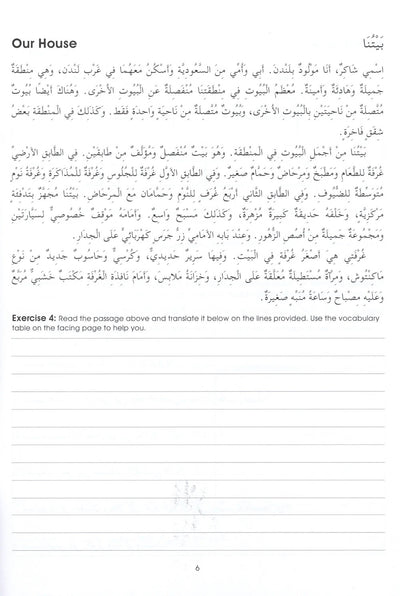 Our House بَيْتُنَا
اِسْمِي شَاكِرٌ، أَنَا مَوْلُودٌ بِلَنْدَنَ. أَبِي وَأُمِّي مِنَ السَّعُودِيَّةِ وَأَسْكُنُ مَعَهُمَا فِي غَرْبِ لَنْدَنَ، وَهِيَ مِنْطَقَةٌ
جَمِيلَةٌ وَهَادِئَةٌ وَأَمِينَةٌ. مُعْظَمُ الْبُيُوتِ فِي مِنْطَقَتِنَا مُنْفَصِلَةٌ عَنِ الْبُيُوتِ الأُخْرَى. وَهُنَاكَ أَيْضًا بُيُوتٌ
مُتَّصِلَةٌ مِنْ نَاحِيَتَيْنِ بِالْبُيُوتِ الأُخْرَى، وَبُيُوتٌ مُتَّصِلَةٌ مِنْ نَاحِيَةٍ وَاحِدَةٍ فَقَط. وَكَذَلِكَ فِي الْمِنْطَقَةِ بَعْضُ
شِقَقٍ فَاخِرَةٍ.
بَيْتُنَا مِنْ أَجْمَلِ الْبُيُوتِ فِي الْمِنْطَقَةِ. وَهُوَ بَيْتٌ مُنْفَصِلٌ وَمُؤَلَّفٌ مِنْ طَابِقَيْنِ. فِي الطَّابِقِ الأَرْضِيِّ
غُرْفَةٌ لِلطَّعَامِ وَمَطْبَخٌ وَمِرْحَاضٌ وَحَمَّامٌ صَغِيرٌ. وَفِي الطَّابِقِ الأَوَّلِ غُرْفَةٌ لِلْجُلُوسِ وَغُرْفَةٌ لِلْمُذَاكَرَةِ وَغُرْفَةُ نَوْمٍ
مُتَوَسِّطَةٌ لِلضُّيُوفِ. وَفِي الطَّابِقِ الثَّانِي أَرْبَعُ غُرَفٍ لِلنَّوْمِ وَحَمَّامَانِ مَعَ الْمِرْحَاضِ. بَيْتُنَا مُجَهَّزٌ بِتَدْفِئَةٍ
مَرْكَزِيَّةٍ، وَخَلْفَهُ حَدِيقَةٌ كَبِيرَةٌ مُزْهِرَةٌ، وَكَذَلِكَ مَسْبَحٌ وَاسِعٌ. وَأَمَامَهُ مَوْقِفٌ خُصُوصِيٌّ لِسَيَّارَتَيْنِ
وَمَجْمُوعَةٌ جَمِيلَةٌ مِنْ أُصُصِ الزُّهُورِ. وَعِنْدَ بَابِهِ الأَمَامِيِّ زِرُّ جَرَسٍ كَهْرَبَائِيٌّ عَلَى الْجِدَارِ.
غُرْفَتِي هِيَ أَصْغَرُ غُرْفَةٍ فِي الْبَيْتِ. وَفِيهَا سَرِيرٌ حَدِيدِيٌّ، وَكُرْسِيٌّ وَحَاسُوبٌ جَدِيدٌ مِنْ نَوْعِ
مَاكِنْتُوش، وَمِرْآةٌ مُسْتَطِيلَةٌ مُعَلَّقَةٌ عَلَى الْجِدَارِ، وَخِزَانَةُ مَلَابِسَ، وَأَمَامَ نَافِذَةِ الْغُرْفَةِ مَكْتَبٌ خَشَبِيٌّ مُرَبَّعٌ
وَعَلَيْهِ مِصْبَاحٌ وَسَاعَةُ مُنَبِّهٍ صَغِيرَةٌ.
Exercise 4: Read the passage above and translate it below on the lines provided. Use the vocabulary
table on the facing page to help you.
6